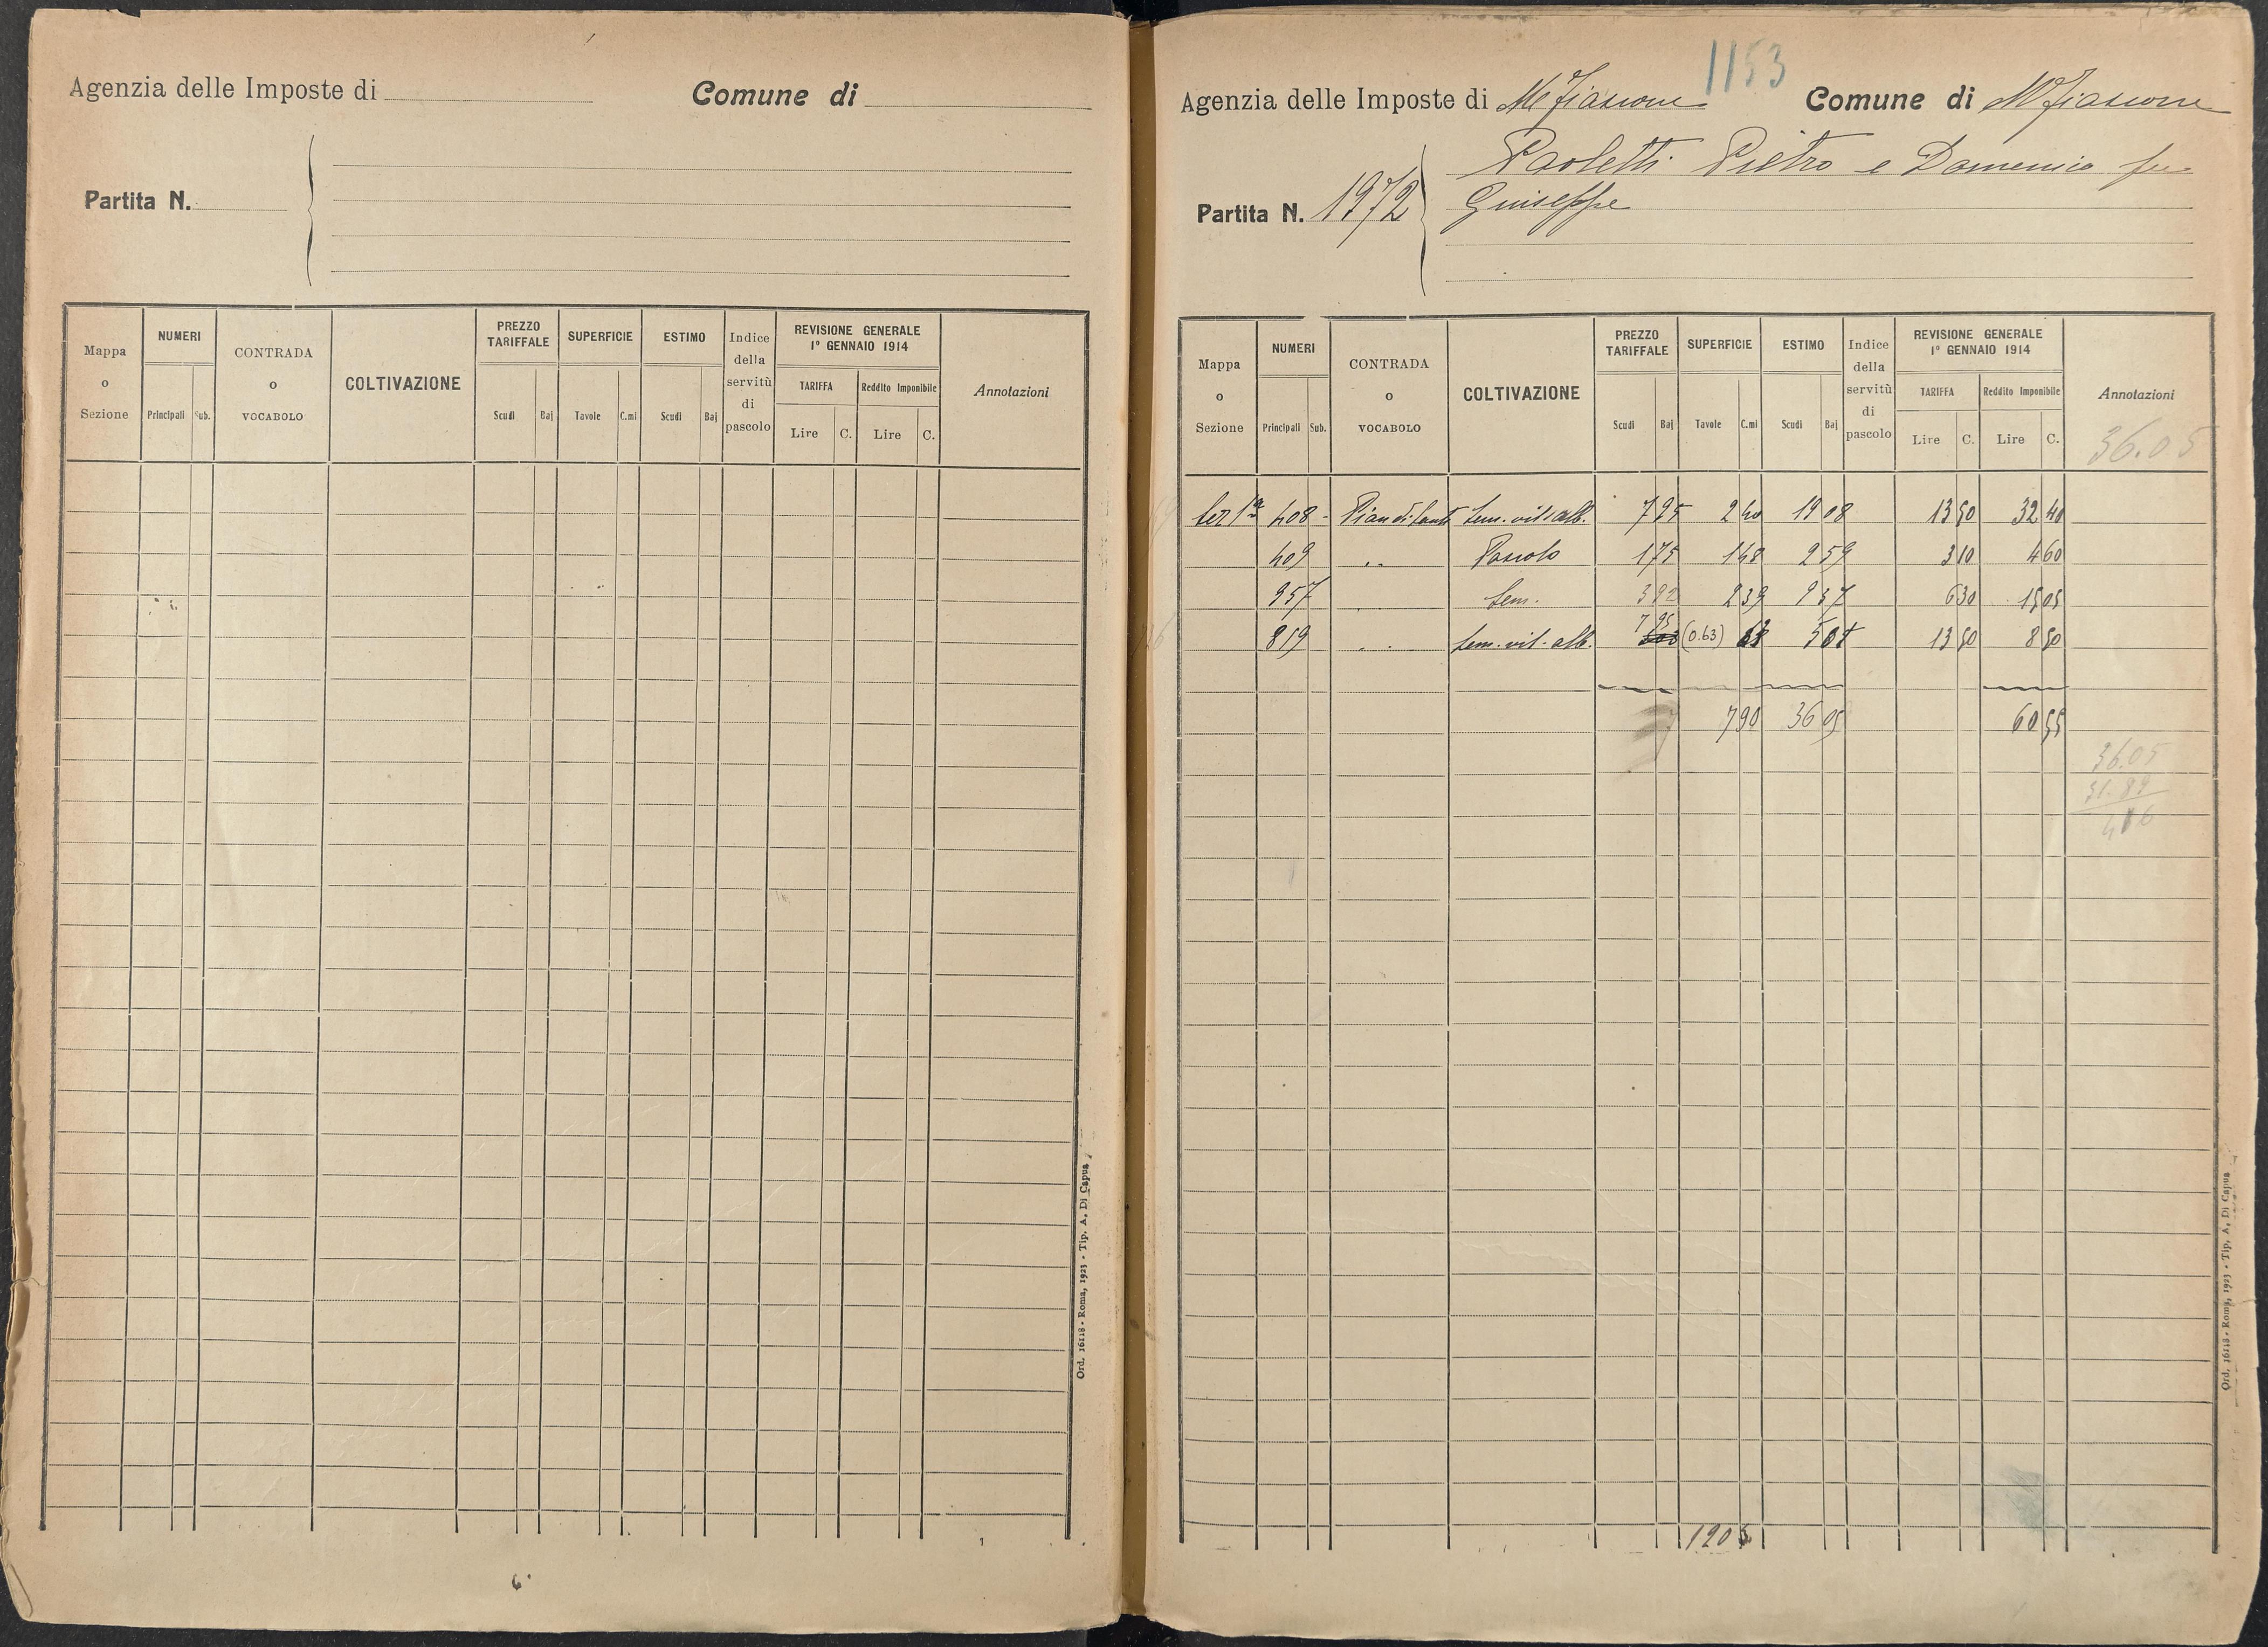 Agenzia delle Imposte di
Comune di
Partita N.
Mappa o Sezione
NUMERI
Principali
Sub.
CONTRADA o VOCABOLO
COLTIVAZIONE
PREZZO TARIFFALE
Scudi
Baj
SUPERFICIE
Tavole
C.mi
ESTIMO
Scudi
Baj
Indice della servitù di pascolo
REVISIONE GENERALE
1° GENNAIO 1914
TARIFFA
Reddito Imponibile
Lire C. Lire C.
Annotazioni
Ord. 16118 - Roma, 1923 - Tip. A. Di Capua
1153
Agenzia delle Imposte di M Fiascone
Comune di M Fiascone
Partita N. 1972
Paoletti Pietro e Domenico fu
Giuseppe
Mappa o Sezione
NUMERI
Principali
Sub.
CONTRADA o VOCABOLO
COLTIVAZIONE
PREZZO TARIFFALE
Scudi
Baj
SUPERFICIE
Tavole
C.mi
ESTIMO
Scudi
Baj
Indice della servitù di pascolo
REVISIONE GENERALE
1° GENNAIO 1914
TARIFFA
Reddito Imponibile
Lire C. Lire C.
Annotazioni
36.05
408 Sem. vit. alb. 7 95 2 40 19 08 13 50 32 40
409 Pascolo 1 75 1 48 2 59 3 10 4 60
957 Sem. 3 92 2 39 9 37 6 30 15 05
819 Sem. vit. alb. 7 95 (0.63) 63 5 01 13 50 8 50
7 90 36 05 60 55
36.05
31.89
4 16
120
Ord. 16118 - Roma, 1923 - Tip. A. Di Capua